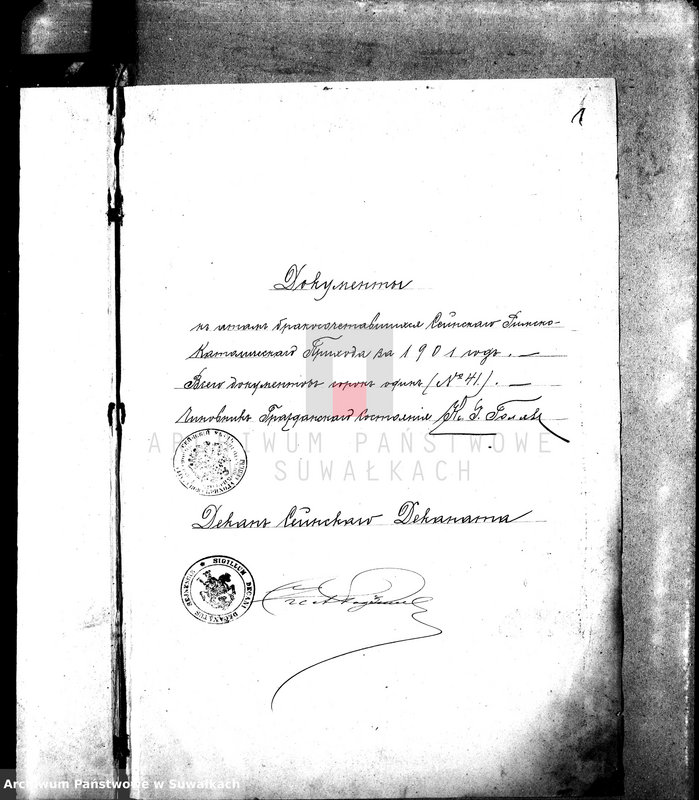 1
Документы
къ актамъ бракосочетавшихся Сейнскаго Римско-
Католическаго Прихода за 1901 годъ. —
Всего документовъ сорокъ одинъ (№ 41). —
Чиновникъ Гражданскаго Состоянія
ARCHIWUM PAŃSTWOWE
SUWAŁKACH
Деканъ Сейнскаго Деканата
SIGILLUM DECANI DECANATUS SEJNENSIS
Archiwum Państwowe w Suwałkach